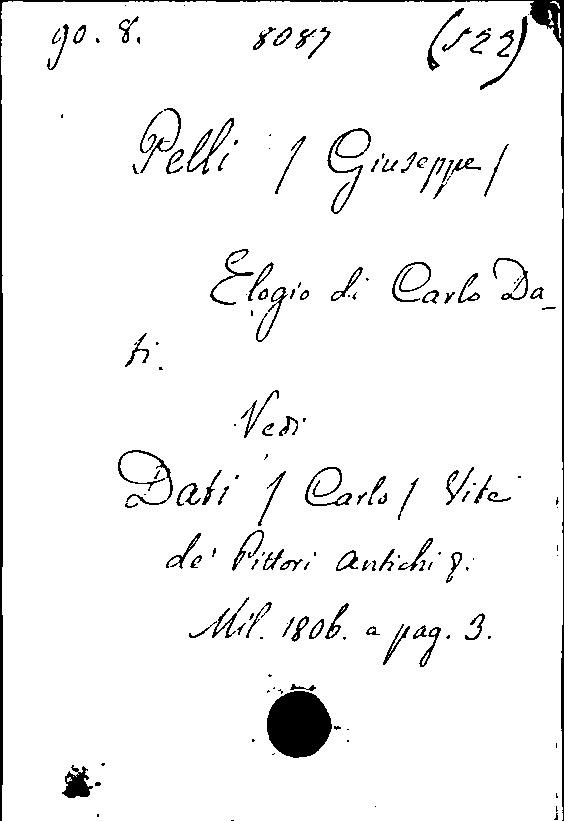 90. 8. 8087 (522)
Pelli / Giuseppe /
Elogio di Carlo Da_
ti.
Vedi
Dati / Carlo / Vite
de' Pittori antichi &.
Mil. 1806. a pag. 3.